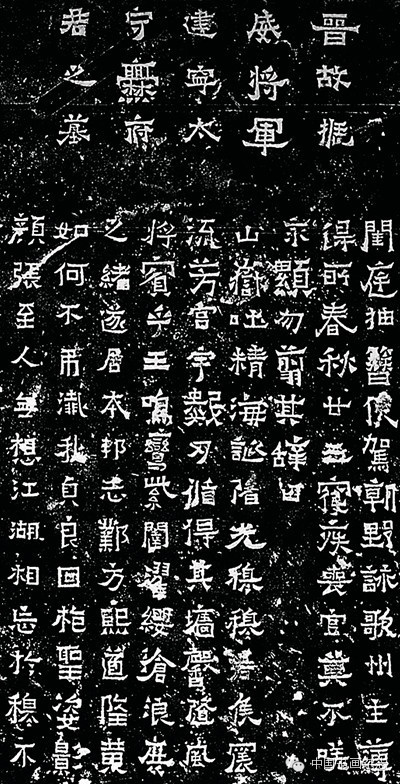 晉故振
威將軍
建寧太
守爨府
君之墓
閨庭抽簪俟駕朝野詠歌州主簿
得所春秋廿五寢疾喪官莫不嗟
永顯勿翦其辭曰
山嶽吐精海誕陼光穆穆君侯震
流芳宮宇數仞循得其墻馨隨風
將賓乎王鳴鸞紫闥濯纓滄浪庶
之緒遂居本邦志鄴方熙道隆黃
如何不弔殲我貞良回抱聖姿影
顏張至人無想江湖相忘於穆不
中国书画